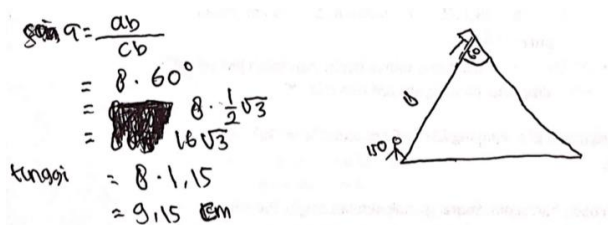 a = ab
cb
= 8 . 60°
= 8 . 1/2 √3
= 16√3
tinggi = 8 . 1,15
= 9,15 cm
60
8
150